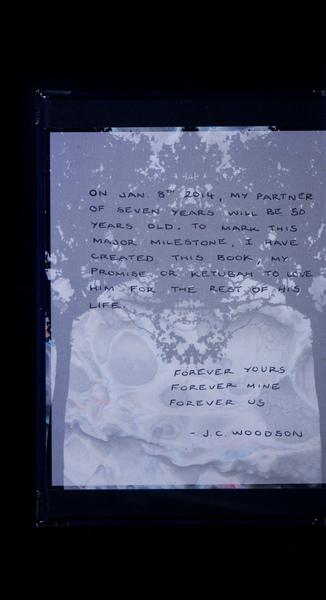 ON JAN. 8TH 2014, MY PARTNER
OF SEVEN YEARS WILL BE 50
YEARS OLD. TO MARK THIS
MAJOR MILESTONE, I HAVE
CREATED THIS BOOK, MY
PROMISE OR KETUBAH TO LOVE
HIM FOR THE REST OF HIS
LIFE.
FOREVER YOURS
FOREVER MINE
FOREVER US
- J.C. WOODSON